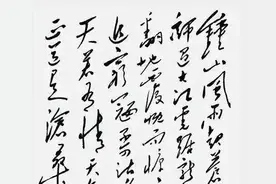 鐘山風雨起蒼
師過大江虎踞龍
翻地覆慨而慷
追窮寇不可沽名
天若有情天亦
正道是滄桑